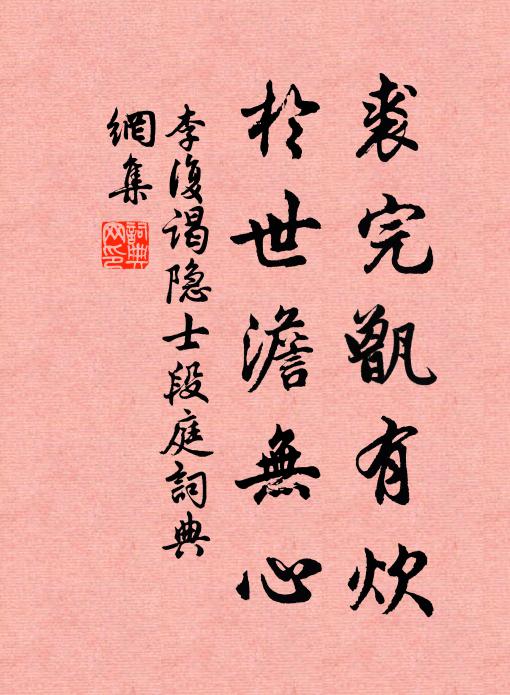 裘完甑有炊
於世澹無心
李復謁隐士段庭詞典
網集
詞典
网印